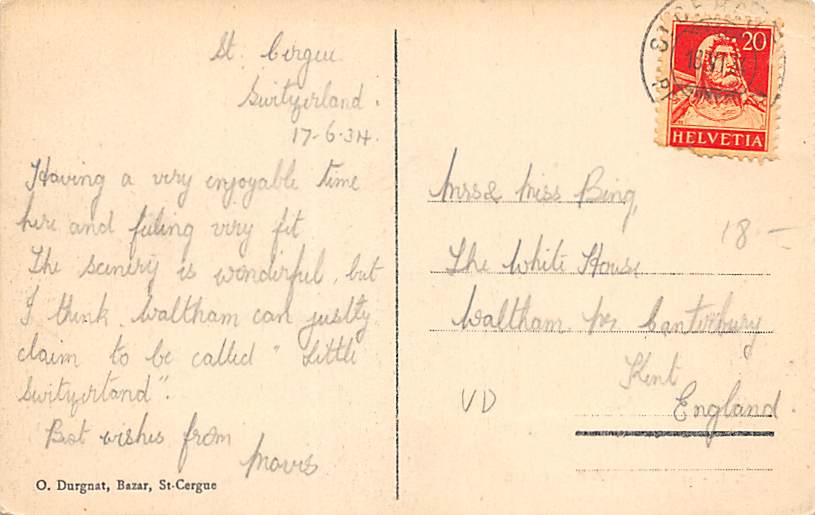 St. Cergue
Switzerland.
17-6-34.
Having a very enjoyable time
here and feeling very fit
The scenery is wonderful, but
I think Waltham can justly
claim to be called "Little
Switzerland".
Best wishes from
Mavis
O. Durgnat, Bazar, St-Cergue
20
HELVETIA
Mrs & Miss Bing,
The White House
Waltham. Nr Canterbury
Kent
England
18 –
VD